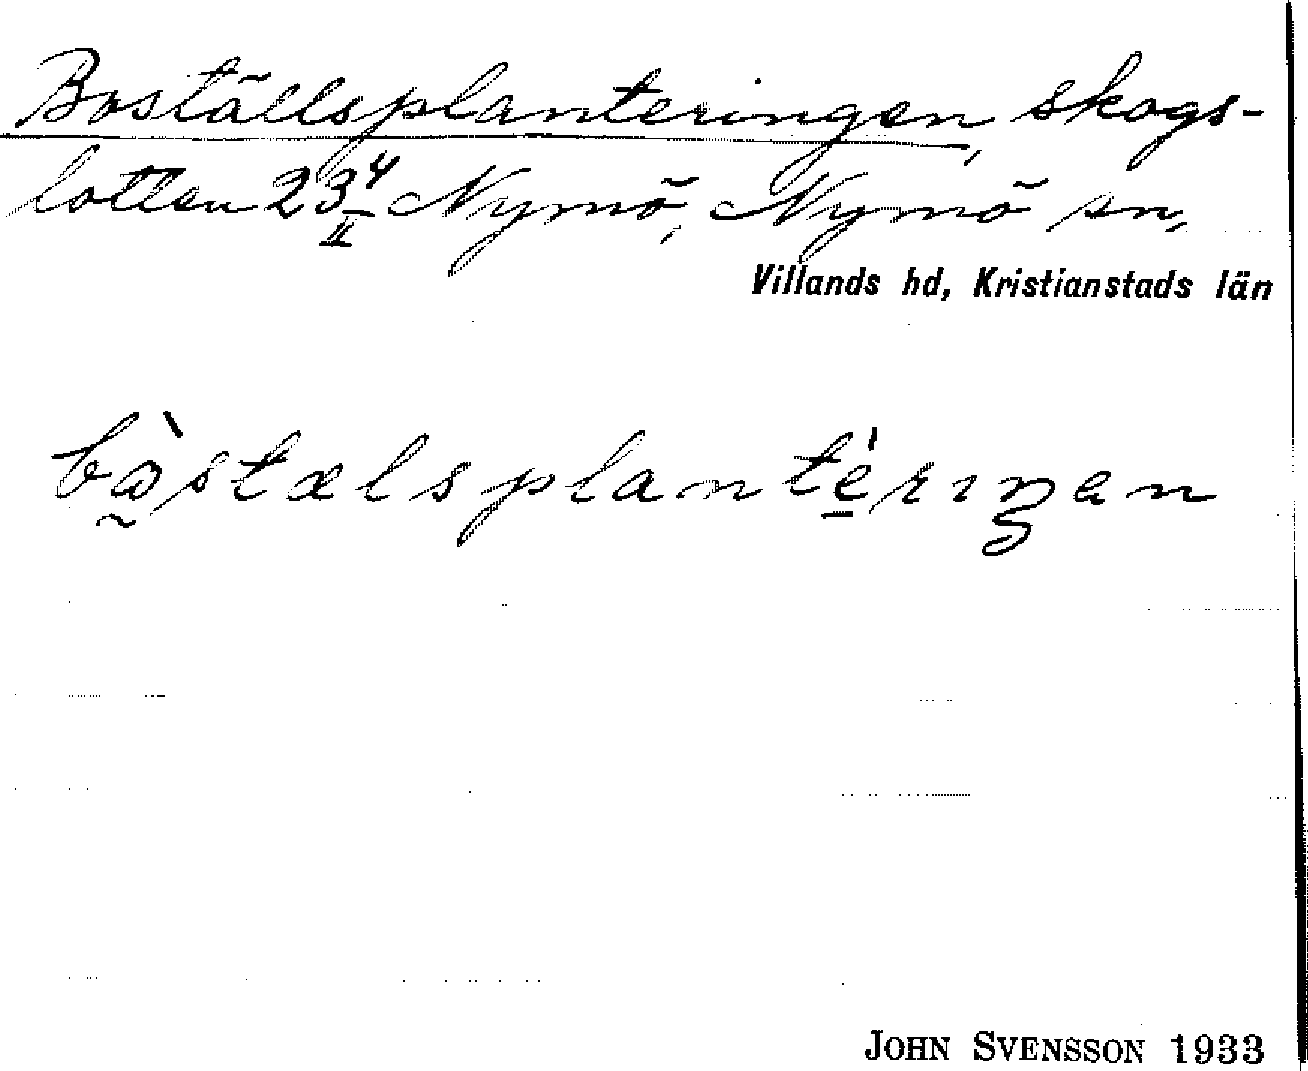 Boställsplanteringen, skogs-
lotten 23 4/II Nymö, Nymö sn,
Villands hd, Kristianstads län
bàstælsplantérıŋen
JOHN SVENSSON 1933